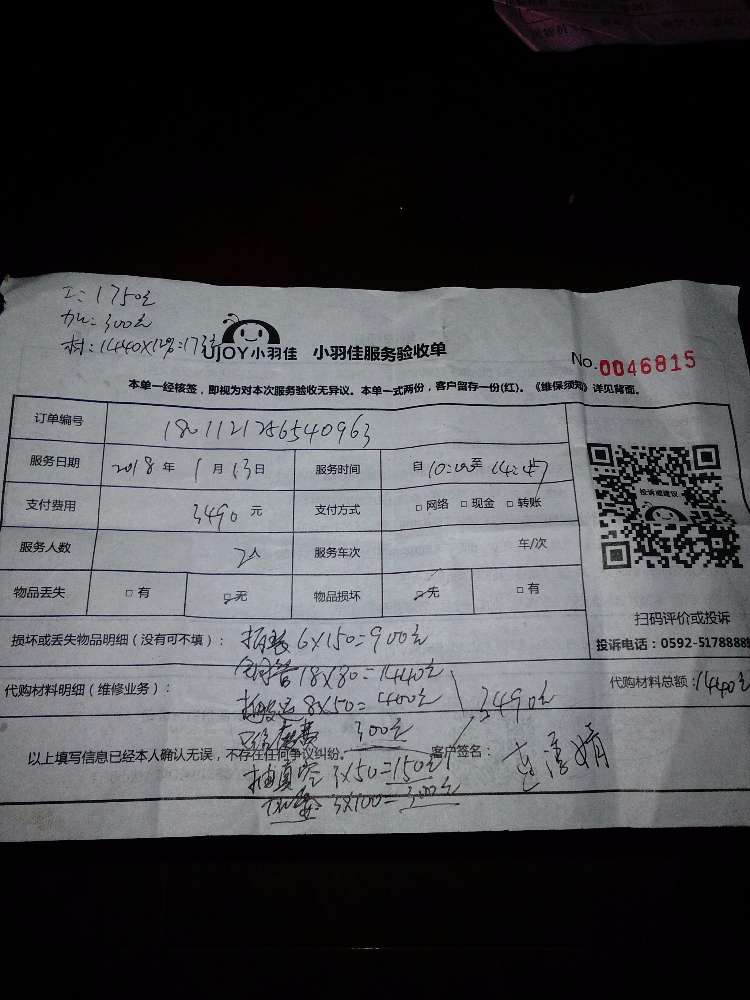 工：1750元
加：300元
材：1440×12%=173元
UJOY小羽佳 小羽佳服务验收单
No.0046815
本单一经核签，即视为对本次服务验收无异议。本单一式两份，客户留存一份(红)。《维保须知》详见背面。
订单编号
服务日期 2018 年 1 月 13 日 服务时间 自 10:00 至
支付费用 3490 元 支付方式 □ 网络 □ 现金 □ 转账
服务人数 2人 服务车次 车/次
物品丢失 □ 有 □ 无 物品损坏 □ 无 □ 有
投诉或建议
扫码评价或投诉
投诉电话：0592-5178888
损坏或丢失物品明细（没有可不填）： 6×150=900元
代购材料明细（维修业务）： 18×80=1440元
代购材料总额：1440元
8×50=400元
3490元
300元
以上填写信息已经本人确认无误，不存在任何争议纠纷。 客户签名：
抽真空 3×50=150元
3×100=300元